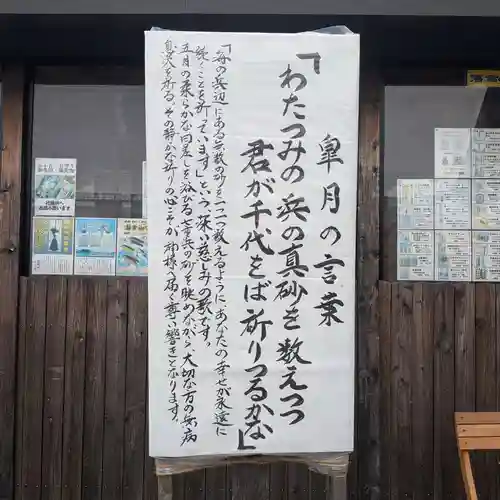 皐月の言葉
「わたつみの浜の真砂を数えつつ
君が千代をば祈りつるかな」
「海の浜辺にある無数の砂を一つ一つ数えるように、あなたの幸せが永遠に
続くことを祈っています」という深い慈しみの歌です。
五月の柔らかな日差しを浴びる七里の砂を眺めながら、大切な方の無病
息災を祈る。その静かな祈りの心こそが、神様へ届く尊い響きとなります。